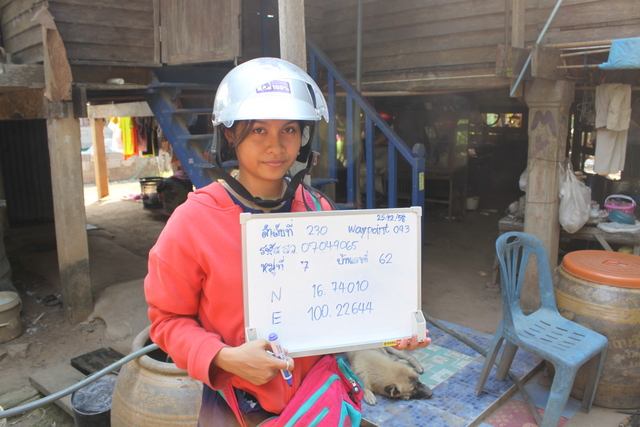 25/12/58
ลำดับที่ 230 Waypoint 093
รหัส สว. 07049065
หมู่ที่ 7 บ้านเลขที่ 62
N 16.74010
E 100.22644